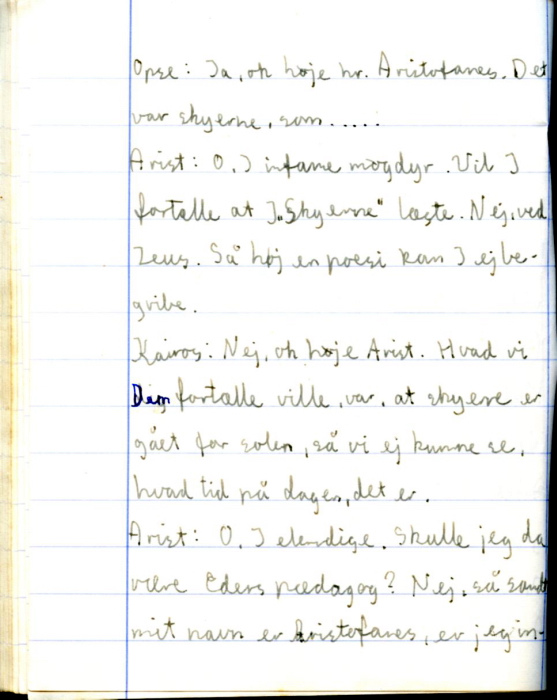 Opse: Ja, oh høje hr. Aristofanes. Det
var skyerne, som.....
Arist: O, I infame møgdyr. Vil I
fortælle at I „Skyerne“ læste. Nej, ved
Zeus. Så høj en poesi kan I ej be-
gribe.
Kairos: Nej, oh høje Arist. Hvad vi
Dem fortælle ville, var, at skyerne er
gået for solen, så vi ej kunne se,
hvad tid på dagen, det er.
Arist: O, I elendige. Skulle jeg da
være Eders pædagog? Nej, så sandt
mit navn er Aristofanes, er jeg in-